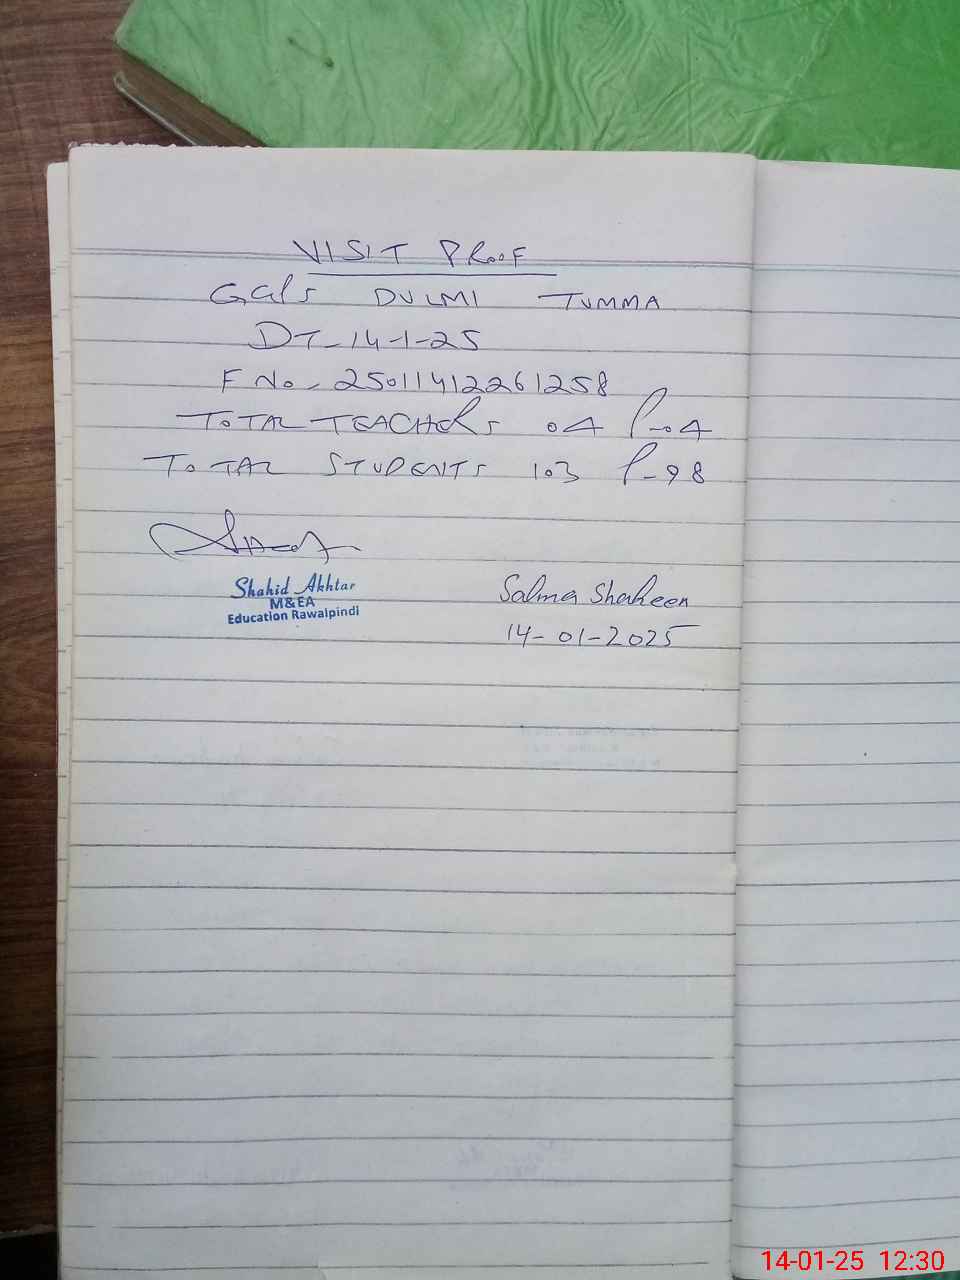 VISIT PROOF
GGPS DULMI TUMMA
DT-14-1-25
F No - 25011412261258
TOTAL TEACHERS 04 P-04
TOTAL STUDENTS 103 P-98
Shahid Akhtar
M&EA
Education Rawalpindi
Salma Shaheen
14-01-2025
14-01-25 12:30